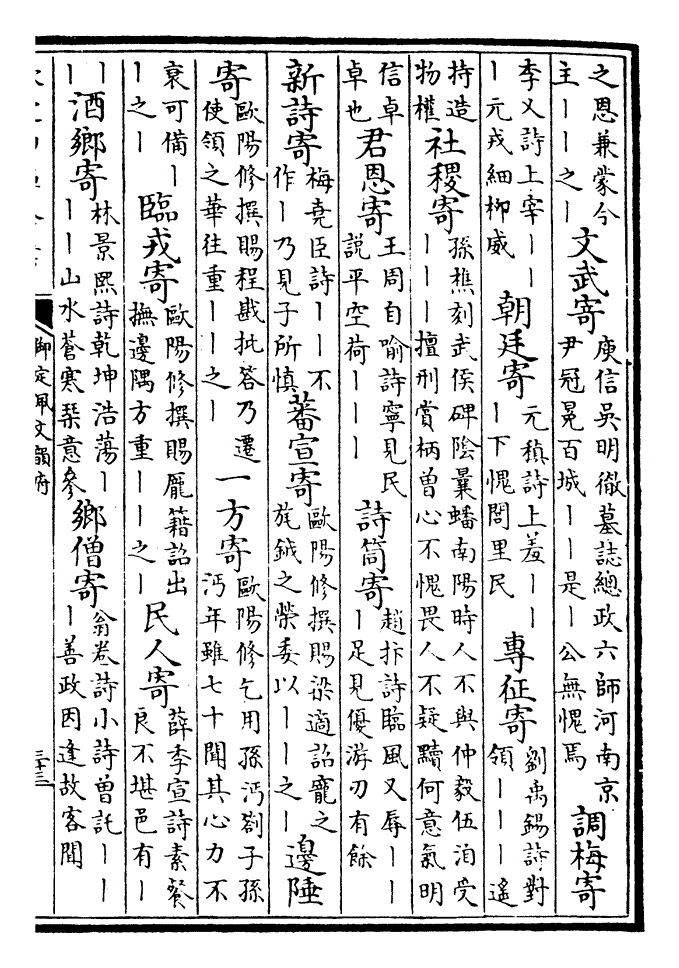 之恩兼蒙今
主丨丨之丨
文武寄
庾信吳明徹墓誌總政六師河南京
尹冠冕百城丨丨是丨公無愧焉
調梅寄
李乂詩上宰丨丨
丨元戎細柳威
朝廷寄
元稹詩上羞丨丨
丨下愧閭里民
專征寄
劉禹錫詩對
領丨丨丨遙
持造
物權
社稷寄
孫樵刻武侯碑陰彙蟠南陽時人不與仲毅伍洎受
丨丨丨擅刑賞柄曾心不愧畏人不疑黷何意氣明
信卓
卓也
君恩寄
王周自喻詩寧見民
說平空荷丨丨丨
詩筒寄
趙抃詩臨風又辱丨丨
丨足見優游刃有餘
新詩寄
梅堯臣詩丨丨不
作丨乃見子所慎
蕃宣寄
歐陽修撰賜梁適詔寵之
旄鉞之榮委以丨丨之丨
邊陲
寄
歐陽修撰賜程戡批答乃遷
使領之華往重丨丨之丨
一方寄
歐陽修乞用孫沔劄子孫
沔年雖七十聞其心力不
衰可備丨
丨之丨
臨戎寄
歐陽修撰賜龐籍詔出
撫邊隅方重丨丨之丨
民人寄
薛季宣詩素餐
良不堪邑有丨
丨
丨
酒鄉寄
林景熙詩乾坤浩蕩丨
丨丨山水蒼寒琹意參
鄉僧寄
翁卷詩小詩曾託丨丨
丨善政因逢故客聞
御定佩文韻府
三十三